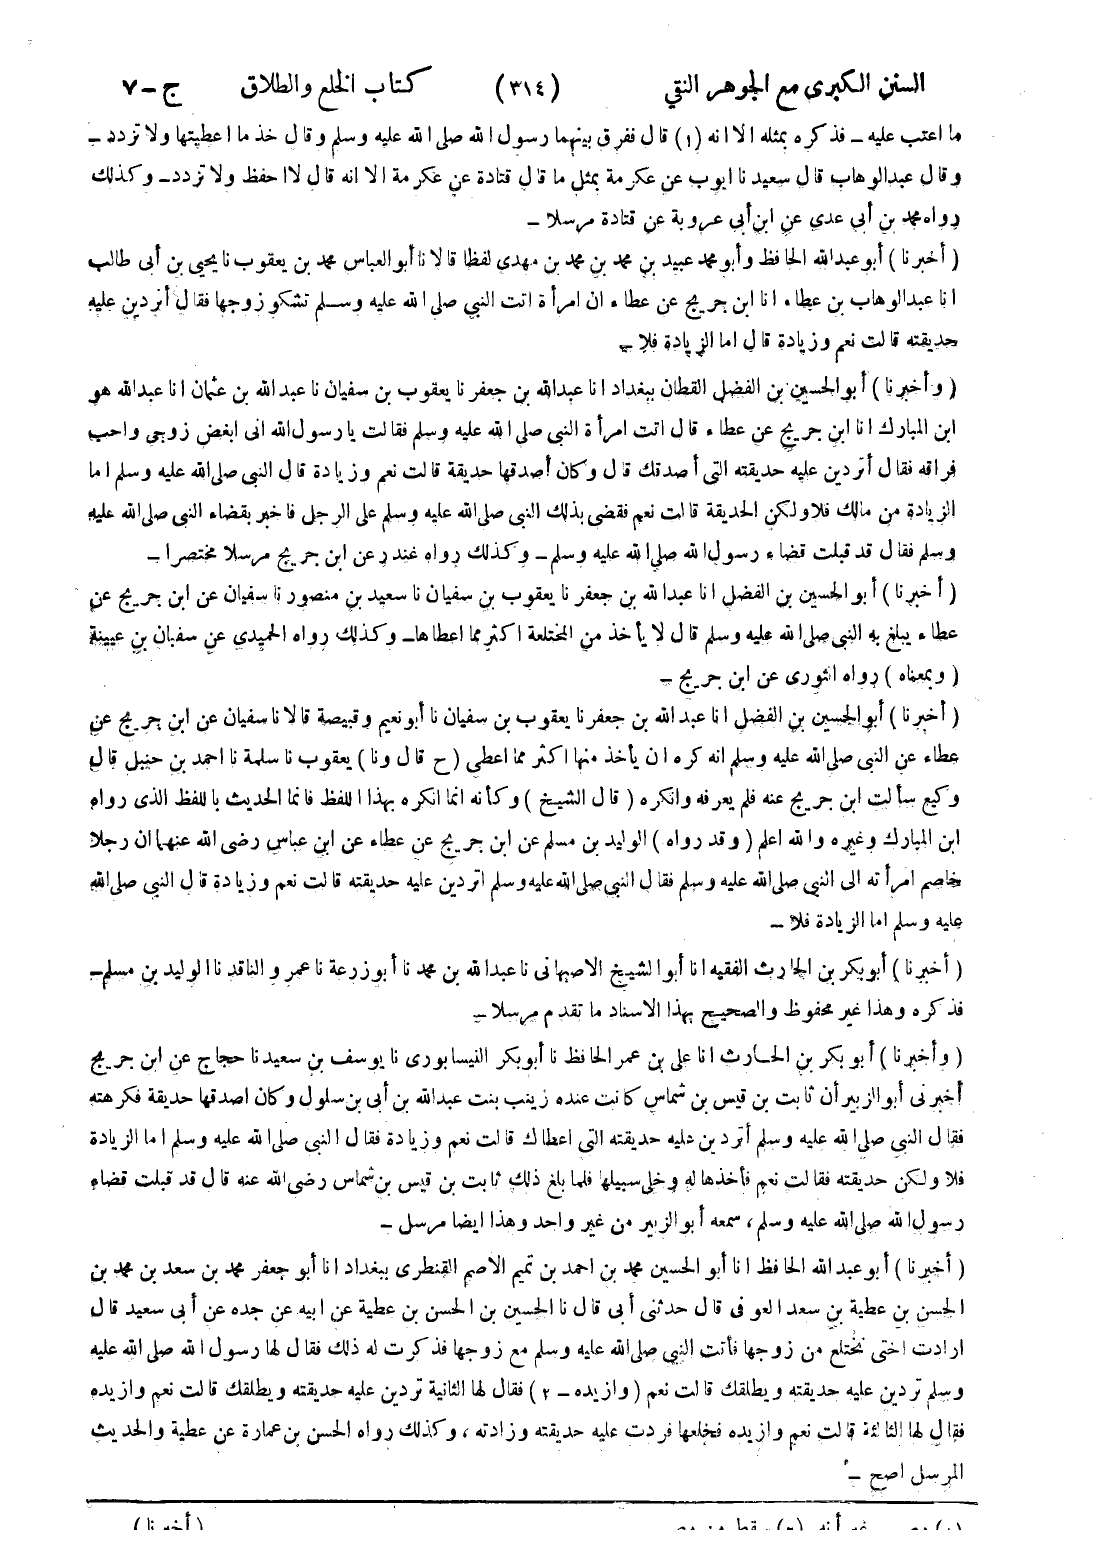 السنن الكبرى مع الجوهر النقي (٣١٤) كتاب الخلع والطلاق ج – ٧
ما اعتب عليه – فذكره بمثله الا انه (١) قال ففرق بينهما رسول الله صلى الله عليه وسلم وقال خذ ما اعطيتها ولا تزدد –
وقال عبدالوهاب قال سعيد نا ايوب عن عكرمة بمثل ما قال قتادة عن عكرمة الا انه قال لا احفظ ولا تزدد – وكذلك
رواه محمد بن أبي عدي عن ابن أبي عروبة عن قتادة مرسلا –
( أخبرنا ) أبو عبد الله الحافظ وأبو محمد عبيد بن محمد بن محمد بن مهدى لفظا قالا نا أبو العباس محمد بن يعقوب نا يحيى بن أبى طالب
انا عبدالوهاب بن عطاء انا ابن جريج عن عطاء ان امرأة اتت النبي صلى الله عليه وسلم تشكو زوجها فقال أتردين عليه
حديقته قالت نعم وزيادة قال اما الزيادة فلا –
( وأخبرنا ) أبو الحسين بن الفضل القطان ببغداد انا عبدالله بن جعفر نا يعقوب بن سفيان نا عبد الله بن عثمان انا عبدالله هو
ابن المبارك انا ابن جريج عن عطاء قال اتت امرأة النبي صلى الله عليه وسلم فقالت يا رسول الله انى ابغض زوجي واحب
فراقه فقال أتردين عليه حديقته التى أصدقك قال وكان أصدقها حديقة قالت نعم وزيادة قال النبي صلى الله عليه وسلم اما
الزيادة من مالك فلا ولكن الحديقة قالت نعم فقضى بذلك النبي صلى الله عليه وسلم على الرجل فاخبر بقضاء النبي صلى الله عليه
وسلم فقال قد قبلت قضاء رسول الله صلى الله عليه وسلم – وكذلك رواه غندر عن ابن جريج مرسلا مختصرا –
( أخبرنا ) أبو الحسين بن الفضل انا عبدالله بن جعفر نا يعقوب بن سفيان نا سعيد بن منصور نا سفيان عن ابن جريج عن
عطاء يبلغ به النبي صلى الله عليه وسلم قال لا يأخذ من المختلعة اكثر مما اعطاها – وكذلك رواه الحميدي عن سفيان بن عيينة
( وبمعناه ) رواه الثورى عن ابن جريج –
( أخبرنا ) أبو الحسين بن الفضل انا عبد الله بن جعفر نا يعقوب بن سفيان نا أبو نعيم وقبيصة قالا نا سفيان عن ابن جريج عن
عطاء عن النبى صلى الله عليه وسلم انه كره ان يأخذ منها اكثر مما اعطى ( ح قال ونا ) يعقوب نا سلمة نا احمد بن حنبل قال
وكيع سألت ابن جريج عنه فلم يعرفه وانكره ( قال الشيخ ) وكأنه انما انكره بهذا اللفظ فانما الحديث باللفظ الذى رواه
ابن المبارك وغيره والله اعلم ( وقد رواه ) الوليد بن مسلم عن ابن جريج عن عطاء عن ابن عباس رضى الله عنهما ان رجلا
خاصم امرأته الى النبي صلى الله عليه وسلم فقال النبي صلى الله عليه وسلم اتردين عليه حديقته قالت نعم وزيادة قال النبي صلى الله
عليه وسلم اما الزيادة فلا –
( أخبرنا ) أبو بكر بن الحارث الفقيه انا أبو الشيخ الاصبهانى نا عبدالله بن محمد نا أبو زرعة نا عمرو الناقد نا الوليد بن مسلم –
فذكره وهذا غير محفوظ والصحيح بهذا الاسناد ما تقدم مرسلا –
( وأخبرنا ) أبو بكر بن الحارث انا على بن عمر الحافظ نا أبو بكر النيسابورى نا يوسف بن سعيد نا حجاج عن ابن جريج
أخبرنى أبو الزبير أن ثابت بن قيس بن شماس كانت عنده زينب بنت عبدالله بن أبى بن سلول وكان اصدقها حديقة فكرهته
فقال النبي صلى الله عليه وسلم أتردين عليه حديقته التى اعطاك قالت نعم وزيادة فقال النبى صلى الله عليه وسلم اما الزيادة
فلا ولكن حديقته فقالت نعم فأخذها له وخلى سبيلها فلما بلغ ذلك ثابت بن قيس بن شماس رضى الله عنه قال قد قبلت قضاء
رسول الله صلى الله عليه وسلم، سمعه أبو الزبير من غير واحد وهذا ايضا مرسل –
( أخبرنا ) أبو عبد الله الحافظ انا أبو الحسين محمد بن احمد بن تميم الاصم القنطرى ببغداد انا أبو جعفر محمد بن سعد بن محمد بن
الحسن بن عطية بن سعد العوفى قال حدثنى أبى قال نا الحسين بن الحسن بن عطية عن ابيه عن جده عن أبى سعيد قال
ارادت اختى تختلع من زوجها فأتت النبي صلى الله عليه وسلم مع زوجها فذكرت له ذلك فقال لها رسول الله صلى الله عليه
وسلم تردين عليه حديقته ويطلقك قالت نعم ( وازيده – ٢ ) فقال لها الثانية تردين عليه حديقته ويطلقك قالت نعم وازيده
فقال لها الثالثة قالت نعم وازيده فخلعها فردت عليه حديقته وزادته، وكذلك رواه الحسن بن عمارة عن عطية والحديث
المرسل اصح –
( أخبرنا )